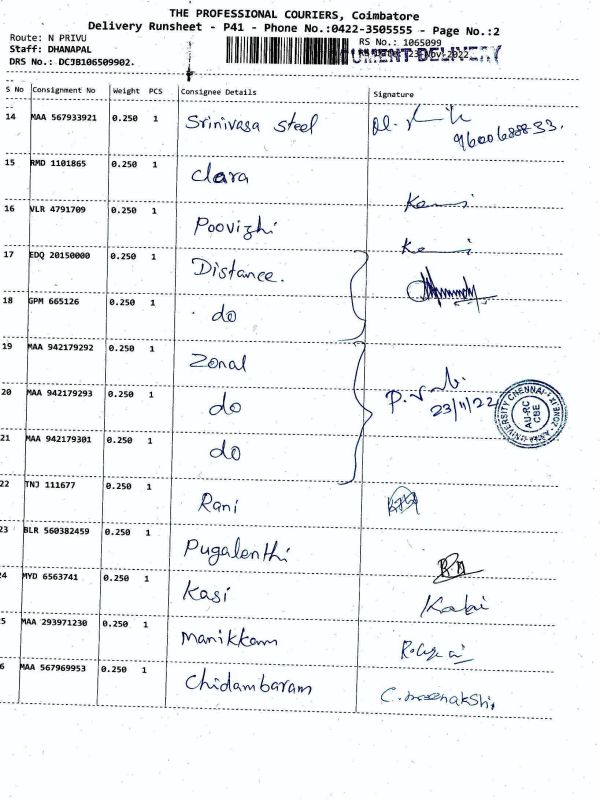 THE PROFESSIONAL COURIERS, Coimbatore
Delivery Runsheet - P41 - Phone No.:0422-3505555 - Page No.:2
Route: N PRIVU
Staff: DHANAPAL
DRS No.: DCJB106509902.
RS No.: 1065099
23-Nov-2022
URGENT DELIVERY
S No Consignment No Weight PCS Consignee Details Signature
14 MAA 567933921 0.250 1 Srinivasa Steel
15 RMD 1101865 0.250 1 Clara
16 VLR 4791709 0.250 1 Poovizhi
17 EDQ 20150000 0.250 1 Distance.
18 GPM 665126 0.250 1 do
19 MAA 942179292 0.250 1 Zonal
20 MAA 942179293 0.250 1 do 23/11/22
21 MAA 942179301 0.250 1 do
22 TNJ 111677 0.250 1 Rani
23 BLR 560382459 0.250 1 Pugalenthi
24 MYD 6563741 0.250 1 Kasi
5 MAA 293971230 0.250 1 Manikkam
6 MAA 567969953 0.250 1 Chidambaram C.meenakshi
AU-RC
CBE